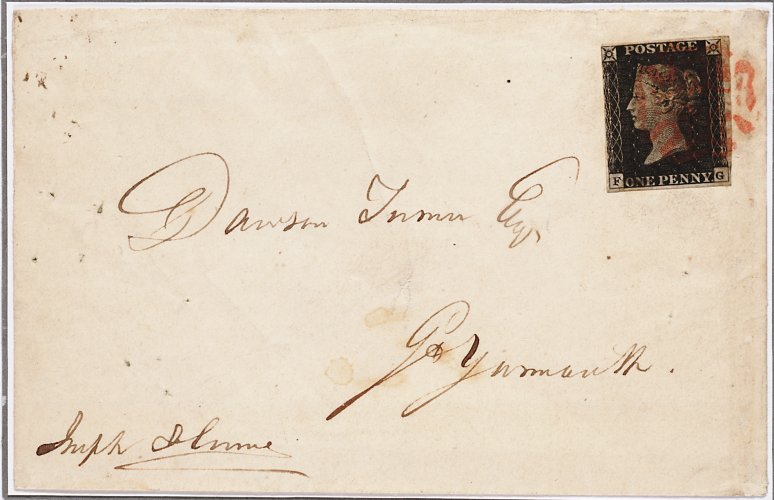 POSTAGE
F ONE PENNY G
Dawson Turner Esqr
Gt Yarmouth.
Joseph Hume